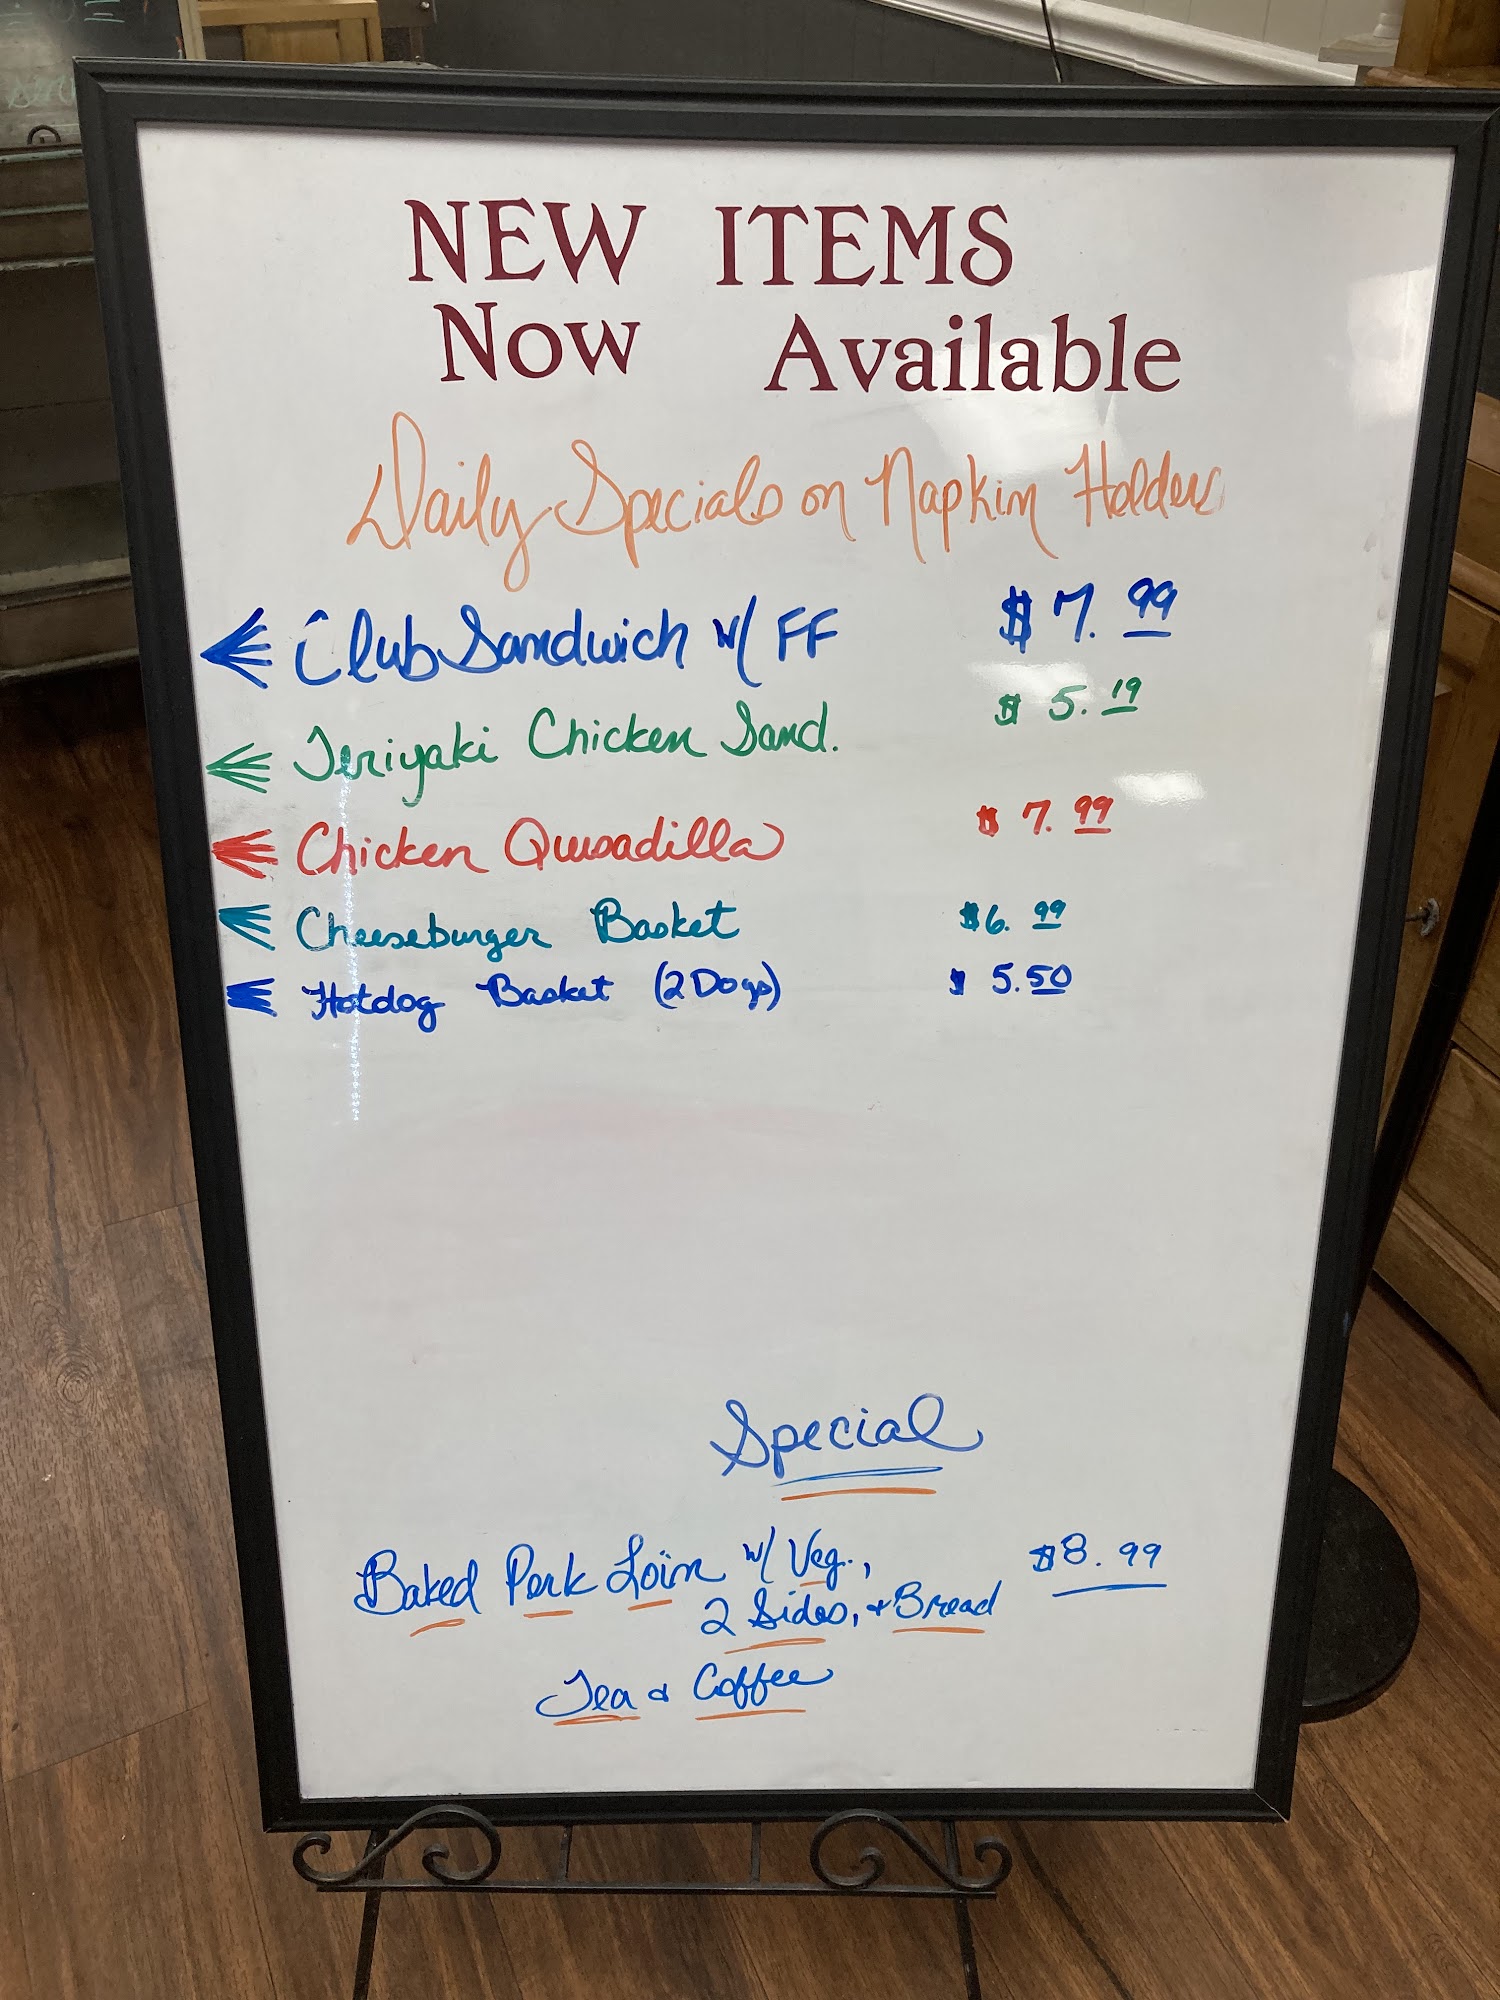 NEW ITEMS
Now Available
Daily Specials on Napkin Holders
Club Sandwich w/ FF $7.99
Teriyaki Chicken Sand. $5.19
Chicken Quesadilla $7.99
Cheeseburger Basket $6.99
Hotdog Basket (2 Dogs) $5.50
Special
Baked Pork Loin w/ Veg., $8.99
2 Sides, + Bread
Tea & Coffee